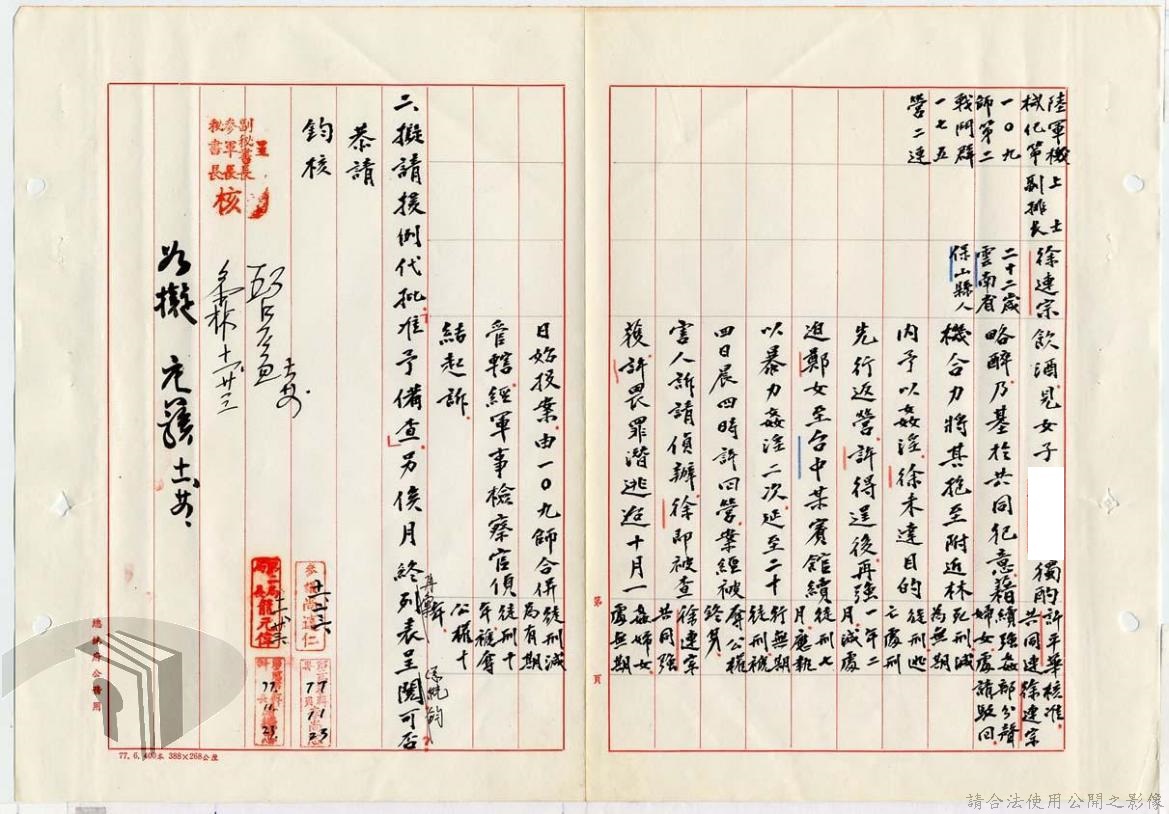 陸軍機
械化第
一〇九
師第二
戰鬥群
一七五
營二連
上士
副排長
徐連宗
二十二歲
雲南省
保山縣人
飲酒見女子 獨酌
略醉乃基於共同犯意藉
機合力將其抱至附近林
內予以姦淫徐未達目的
先行返營許得逞後再強
迫鄭女至台中某賓館續
以暴力姦淫二次延至二十
四日晨四時許回營案經被
害人訴請偵辦徐即被查
獲許畏罪潛逃迨十月一
許平華核准
共同連徐連宗
續強姦部分聲
婦女處請駁回
死刑減
為無期
徒刑逃
亡處刑
一年二
月減處
徒刑七
月應執
行無期
徒刑褫
奪公權
終身
徐連宗
共同強
姦婦女
處無期
日始投案由一〇九師合併
管轄經軍事檢察官偵
結起訴
徒刑減
為有期
徒刑十
年褫奪
公權十
年
二、擬請援例代批准予備查另俟月終列表呈閱可否
恭請
鈞核
呈
副秘書長
參軍長
秘書長
核
如擬
第 頁
總統府公務用
77. 6. 400本 388×268公釐
參議尚達仁
第二局局長龍元偉
77
11
23
77.
11.
23.
請合法使用公開之影像